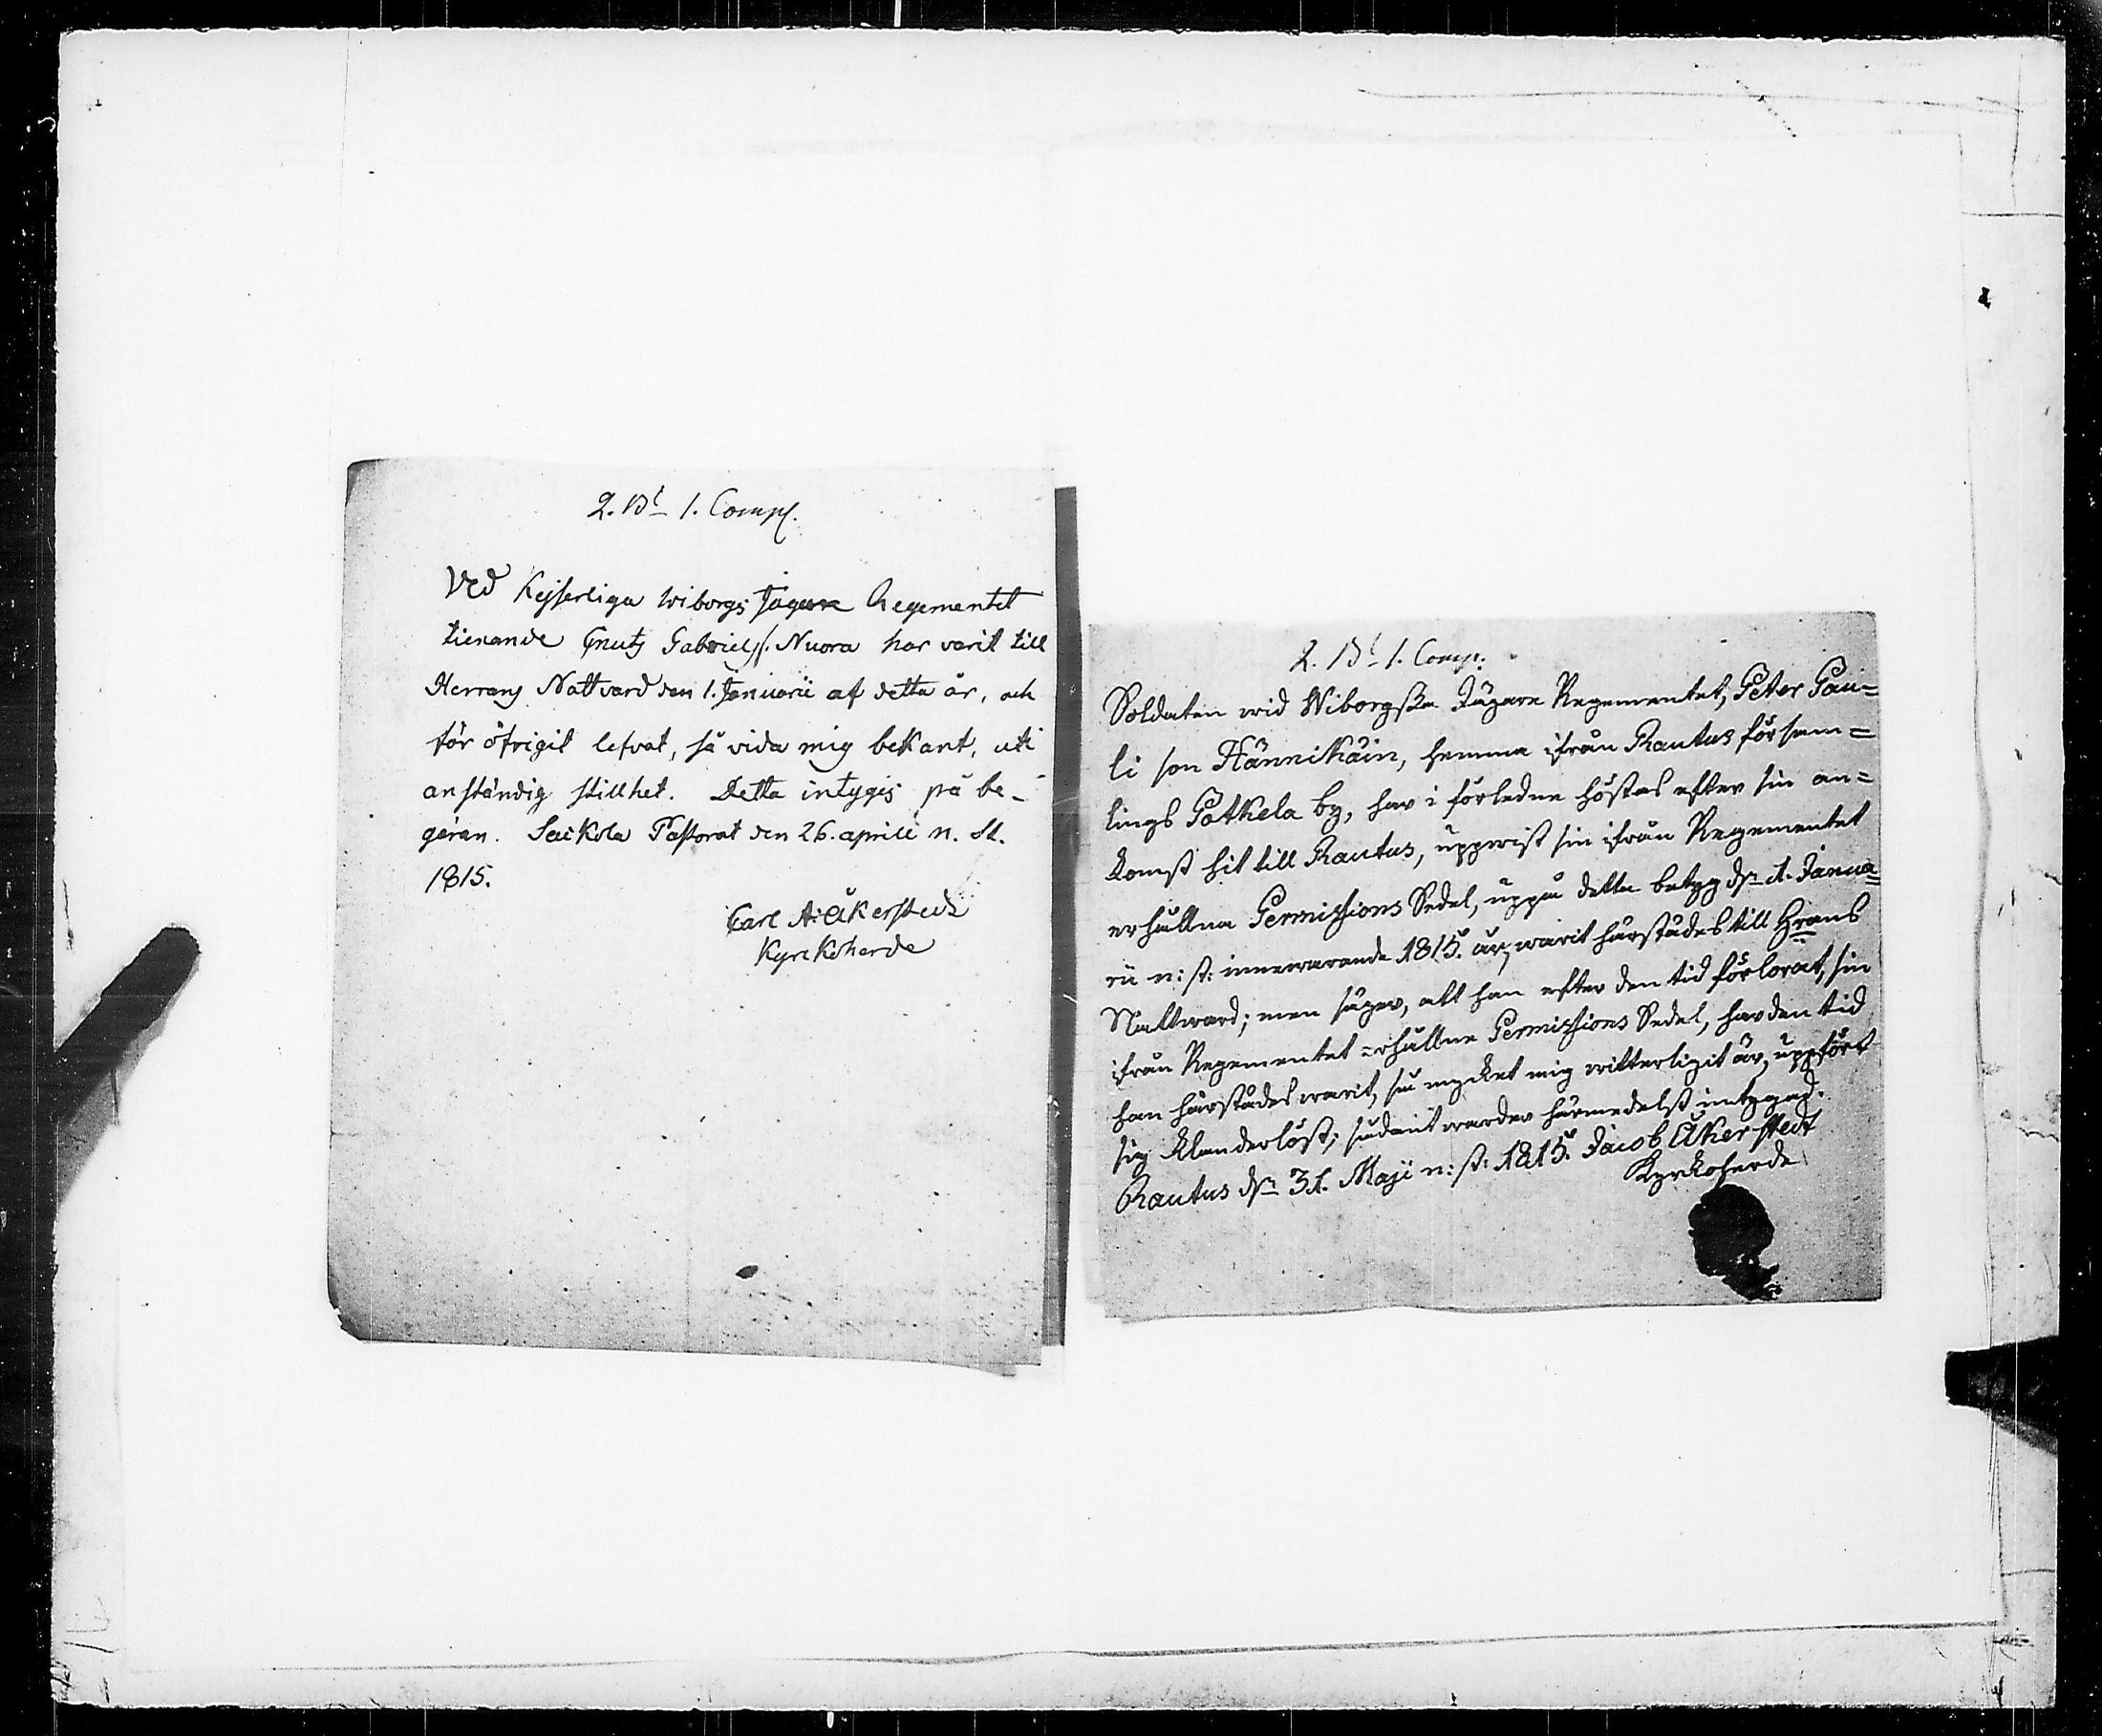 2. Bt 1. Comp.
Ved Kejserliga Wiborgs Jägare Regementet
tienande Cnuts Gabriels. Nuora har varit till
Herrans Nattvard den 1. Januarii af detta år, och
för öfrigit lefvat, så vida mig bekant, uti
anständig stillhet. Detta intygis på be-
gäran. Sackola Pastorat den 26. aprili n. St.
1815.
Carl A: Åkerstedt
Kyrkoherde
2. Bt 1. Comp:
Soldaten wid Wiborgska Jägare Regementet, Peter Pau=
li son Hännikäin, hemma ifrån Rautus försam=
lings Potkela by, har i förledne höstas efter sin an=
komst hit till Rautus, uppwist sin ifrån Regementet
erhållna Permissions Sedel, uppå detta betyg dn 1. Janua=
rii n: st: innewarande 1815. år, warit härstädes till Hrans
Nattward; men säger, att han efter den tid förlorat, sin
ifrån Regementet erhållne Permissions Sedel, har den tid
han härstädes warit, så mycket mig witterligit är, uppfört
sig klanderlöst; sådant warder härmedelst intygad.
Rautus dn 31. Maji n: st: 1815. Jacob Åkerstedt
Kyrkoherde